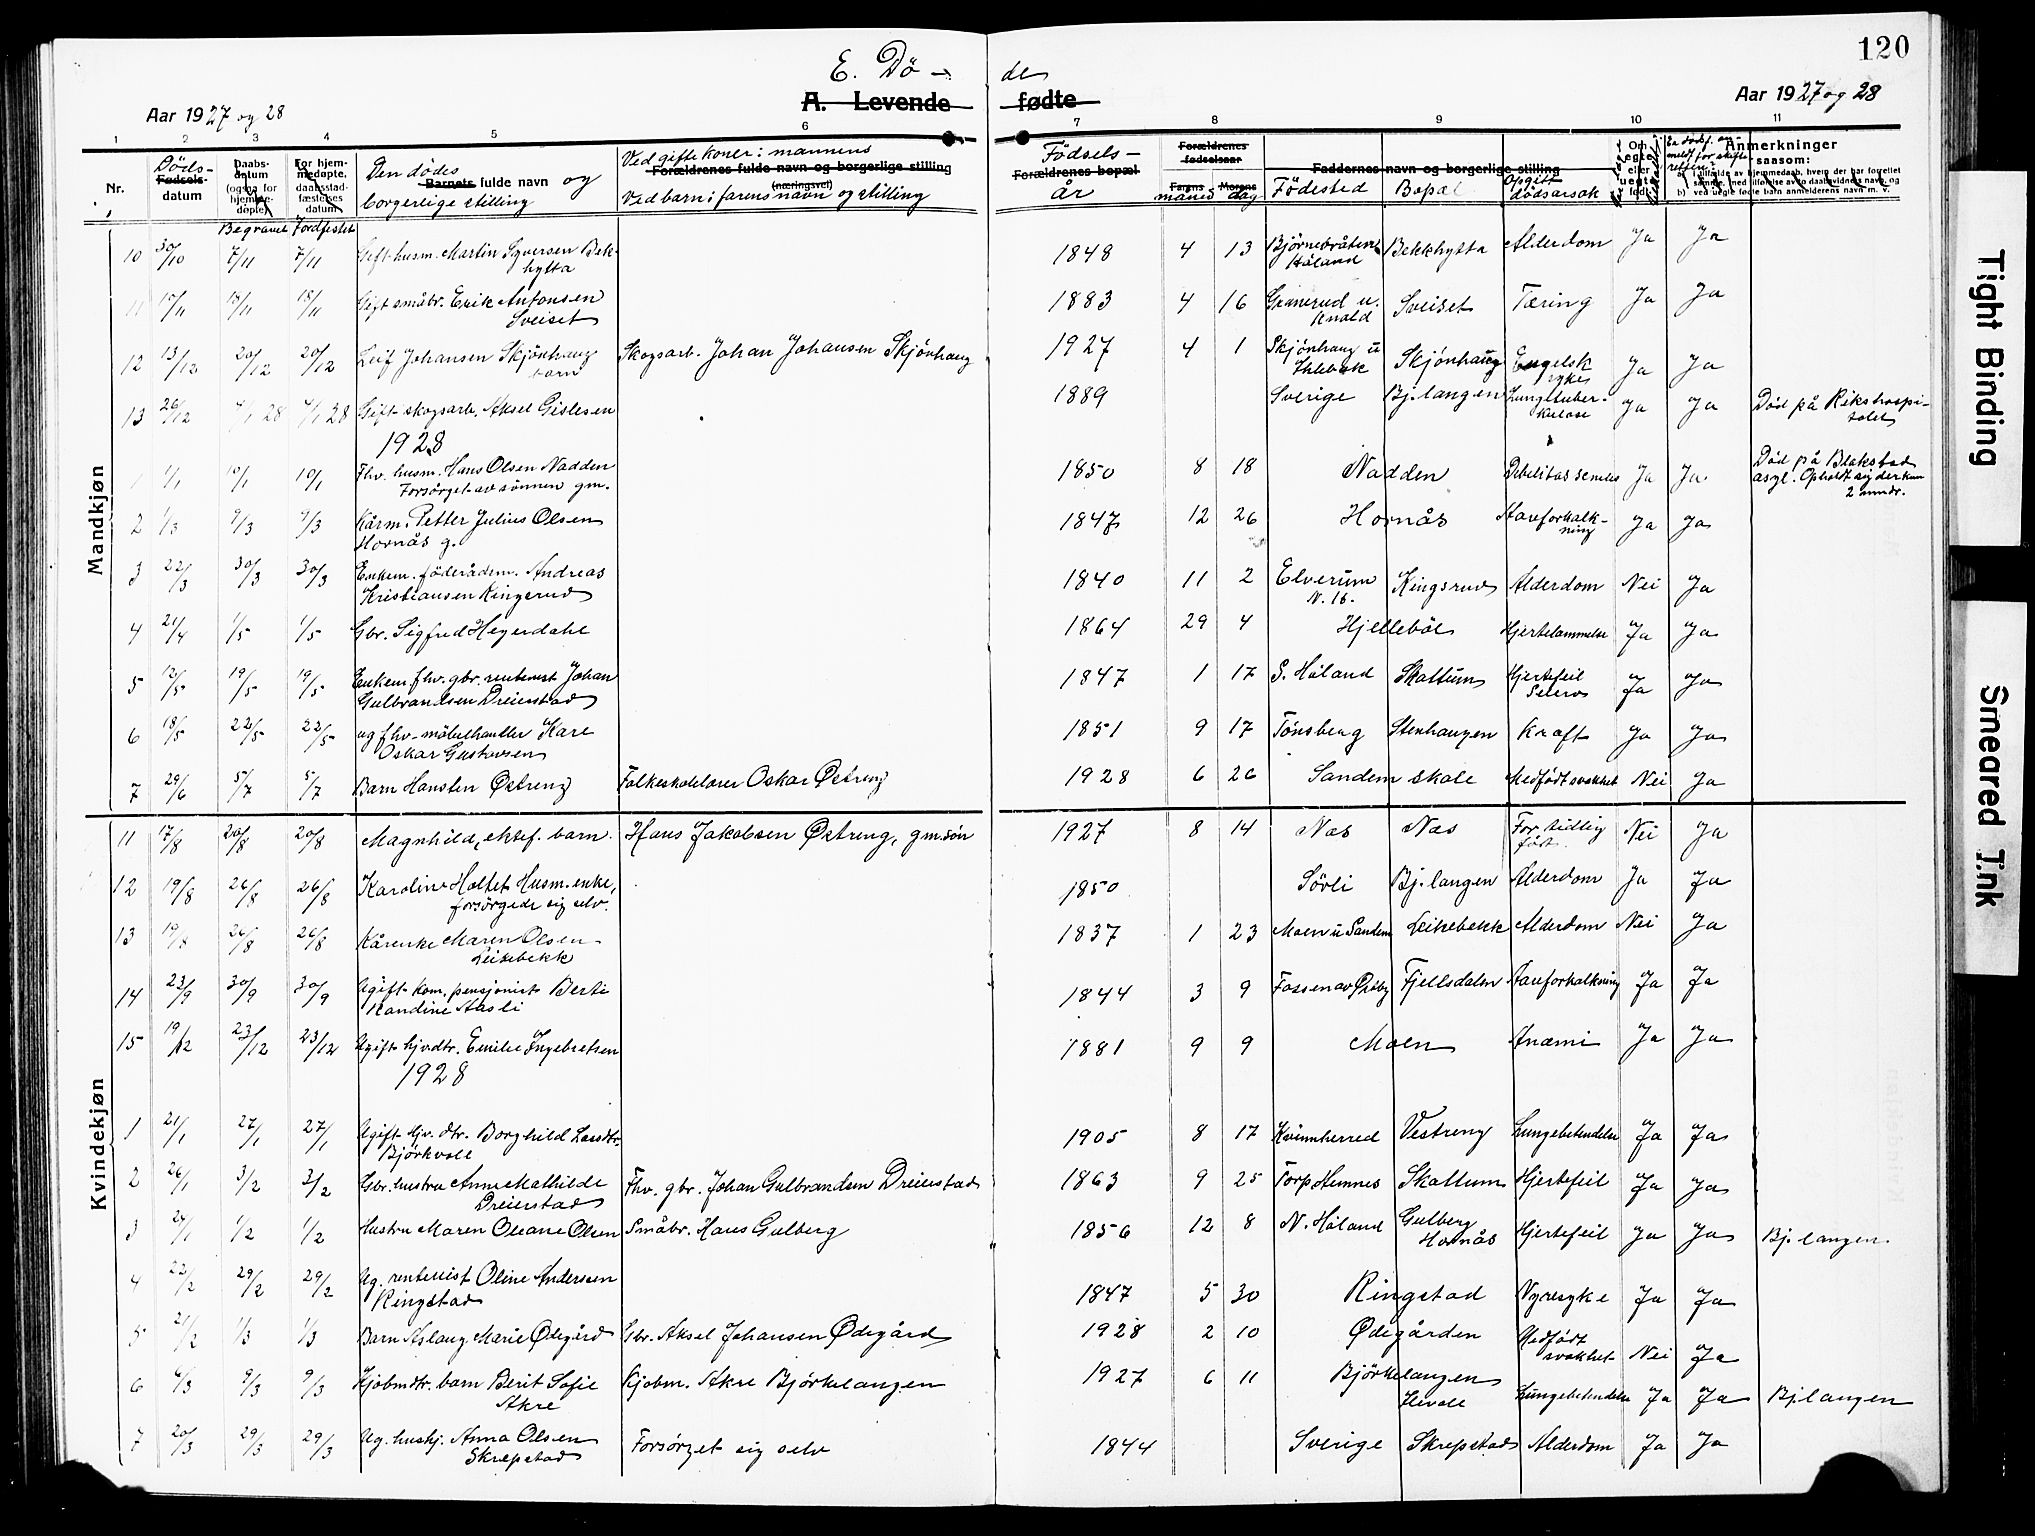 120
E. Dø - de
A. Levende fødte
Aar 1927 og 28
Aar 1927 og 28
1 2 3 4 5 6 7 8 9 10 11
Nr.
Døds-
Fødsels-
datum
Daabs-
datum
(og saa for
hjemme-
døpte)
For hjem-
medøpte,
daabsstad-
fæstelses
datum
Den dødes
Barnets fulde navn og
borgerlige stilling
Ved gifte koner: mannens
Forældrenes fulde navn og borgerlige stilling
(næringsvei)
Ved barn: farens navn og stilling
Fødsels-
Forældrenes bopæl
år
Forældrenes
fødselsaar
Farens Morens
måned dag
Faddernes navn og borgerlige stilling
Fødested Bopæl Opgitt
dødsårsak
Anmerkninger
saasom:
Begravet Jordfestet
Mandkjøn
10 30/10 7/11 7/11 Gift husm. Martin Syversen Bek-
hytta 1848 4 13 Bjørnebråten
Høland Bekkhytta Alderdom Ja Ja
11 15/11 18/11 18/11 Gift småbr. Erik Antonsen
Sveiset 1883 4 16 Granerud u.
Knold Sveiset Tæring Ja Ja
12 13/12 20/12 20/12 Leif Johansen Skjønhaug
barn Skogsarb. Johan Johansen Skjønhaug 1927 4 1 Skjønhaug u
Ihlebæk Skjønhaug Engelsk
syke Ja Ja
13 26/12 4/1 28 4/1 28 Gift skogsarb. Aksel Gislesen 1889 Sverige Bj.langen Lungetuber-
kulose Ja Ja Død på Rikshospi-
talet
1928
1 1/1 10/1 10/1 Fhv. husm. Hans Olsen Nadden
Forsørget av sønnen gm. 1850 8 18 Nadden Debilitas senilis Ja Ja. Død på Blakstad
asyl. Opholdt sig der kun
2 mndr.
2 1/3 9/3 9/3 Kårm. Petter Julius Olsen
Hornås g. 1847 12 26 Hornås Aareforkalk-
ning Ja Ja
3 22/3 30/3 30/3 Enkem. føderådsm. Andreas
Kristiansen Kingsrud 1840 11 2 Elverum
N. 16. Kingsrud Alderdom Nei Ja
4 21/4 1/5 1/5 Gbr. Sigfred Heyerdahl 1864 29 4 Hjellebøl Hjertelammelse Ja Ja
5 12/5 19/5 19/5 Enkem. fhv. gbr. rentenist Johan
Gulbrandsen Dreierstad 1847 1 17 S. Høland Skattum Hjertefeil
Ja Ja
6 18/5 22/5 22/5 ug fhv. møbelhandler Kare
Oskar Gustavsen 1851 9 17 Tønsberg Stenhaugen Kræft Ja Ja
7 29/6 5/7 5/7 Barn Hansten Østreng Folkeskolelærer Oskar Østreng 1928 6 26 Sandem skole Medfødt svakhet Nei Ja
Kvindekjøn
11 17/8 20/8 20/8 Magnhild, ektef. barn. Hans Jakobsen Østreng, gm.søn 1927 8 14 Næs Næs For tidlig
født. Nei Ja
12 19/8 26/8 26/8 Karoline Holtet Husm. enke,
forsørgede sig selv. 1850 Sørli Bj.langen Alderdom Ja Ja
13 19/8 26/8 26/8 Kårenke Maren Olsen
Leikebekk 1837 1 23 Moen u Sandem Leikebekk Alderdom Nei Ja
14 23/9 30/9 30/9 Ugift kom. pensjonist Berte
Randine Aasli 1844 3 9 Fossen av Fjellsdalen Aareforkalkning Ja Ja
15 19/12 23/12 23/12 Ugift hjvdtr. Emilie Ingebretsen 1881 9 9 Moen Anæmi Ja Ja
1928
1 21/1 27/1 27/1 Ugift hjv. dtr. Borghild Larsdtr.
Bjørkvoll 1905 8 17 Kvinnherred Vestreng Lungebetendelse Ja Ja
2 26/1 3/2 3/2 Gbr. hustru Anne Mathilde
Dreierstad Fhv. gbr. Johan Gulbrandsen Dreierstad 1863 9 25 Torp Hemnes Skattum Hjertefeil Ja Ja
3 24/1 1/2 1/2 Hustru Maren Oleane Olsen Småbr. Hans Gulberg 1856 12 8 N. Høland Gulberg
Hornås Hjertefeil Ja Ja Bj.langen.
4 22/2 29/2 29/2 Ug. rentenist Oline Andersen
Ringstad 1847 5 30 Ringstad Nyresyke Ja Ja
5 21/2 1/3 1/3 Barn Aslaug Marie Ødegård Gbr. Aksel Johansen Ødegård 1928 2 10 Ødegården Medfødt
svakhet Nei Ja
6 4/3 9/3 9/3 Kjøbmdtr. barn Berit Sofie
Akre Kjøbm. Akre Bjørkelangen 1927 6 11 Bjørkelangen
Lungebetendelse Ja Ja Bj.langen
7 20/3 29/3 29/3 Ug. hushj. Anna Olsen
Skrepstad Forsørget sig selv 1844 Sverige Skrepstad Alderdom Ja Ja
Tight Binding
Smeared Ink